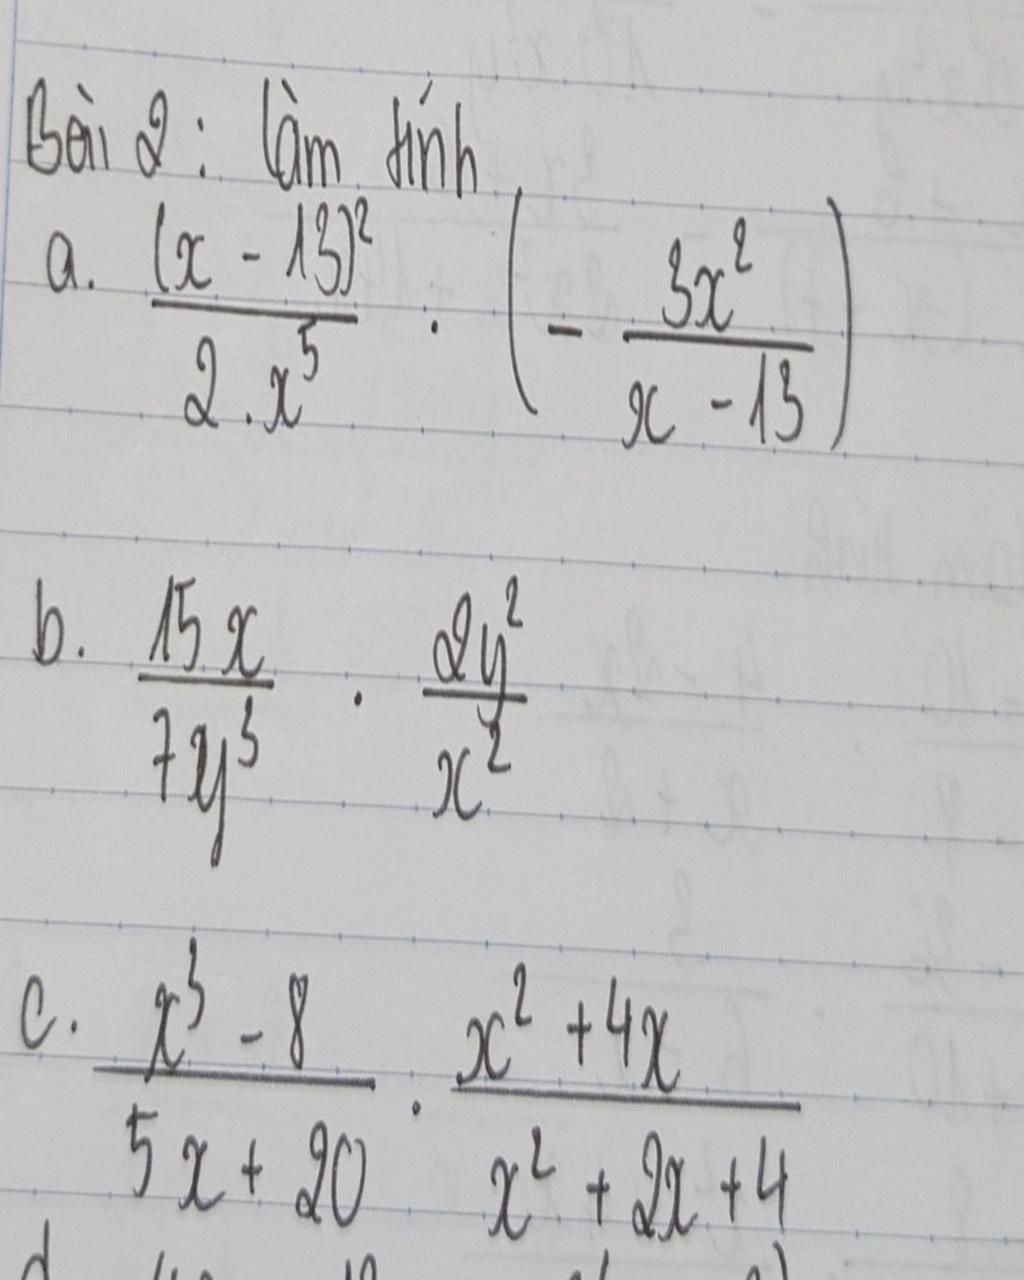 Bài 2: làm tính
a. (x - 13)² / 2.x⁵ . (- 3x² / x - 13)
b. 15x / 7y³ . 2y² / x²
c. x³ - 8 / 5x + 20 . x² + 4x / x² + 2x + 4
d.